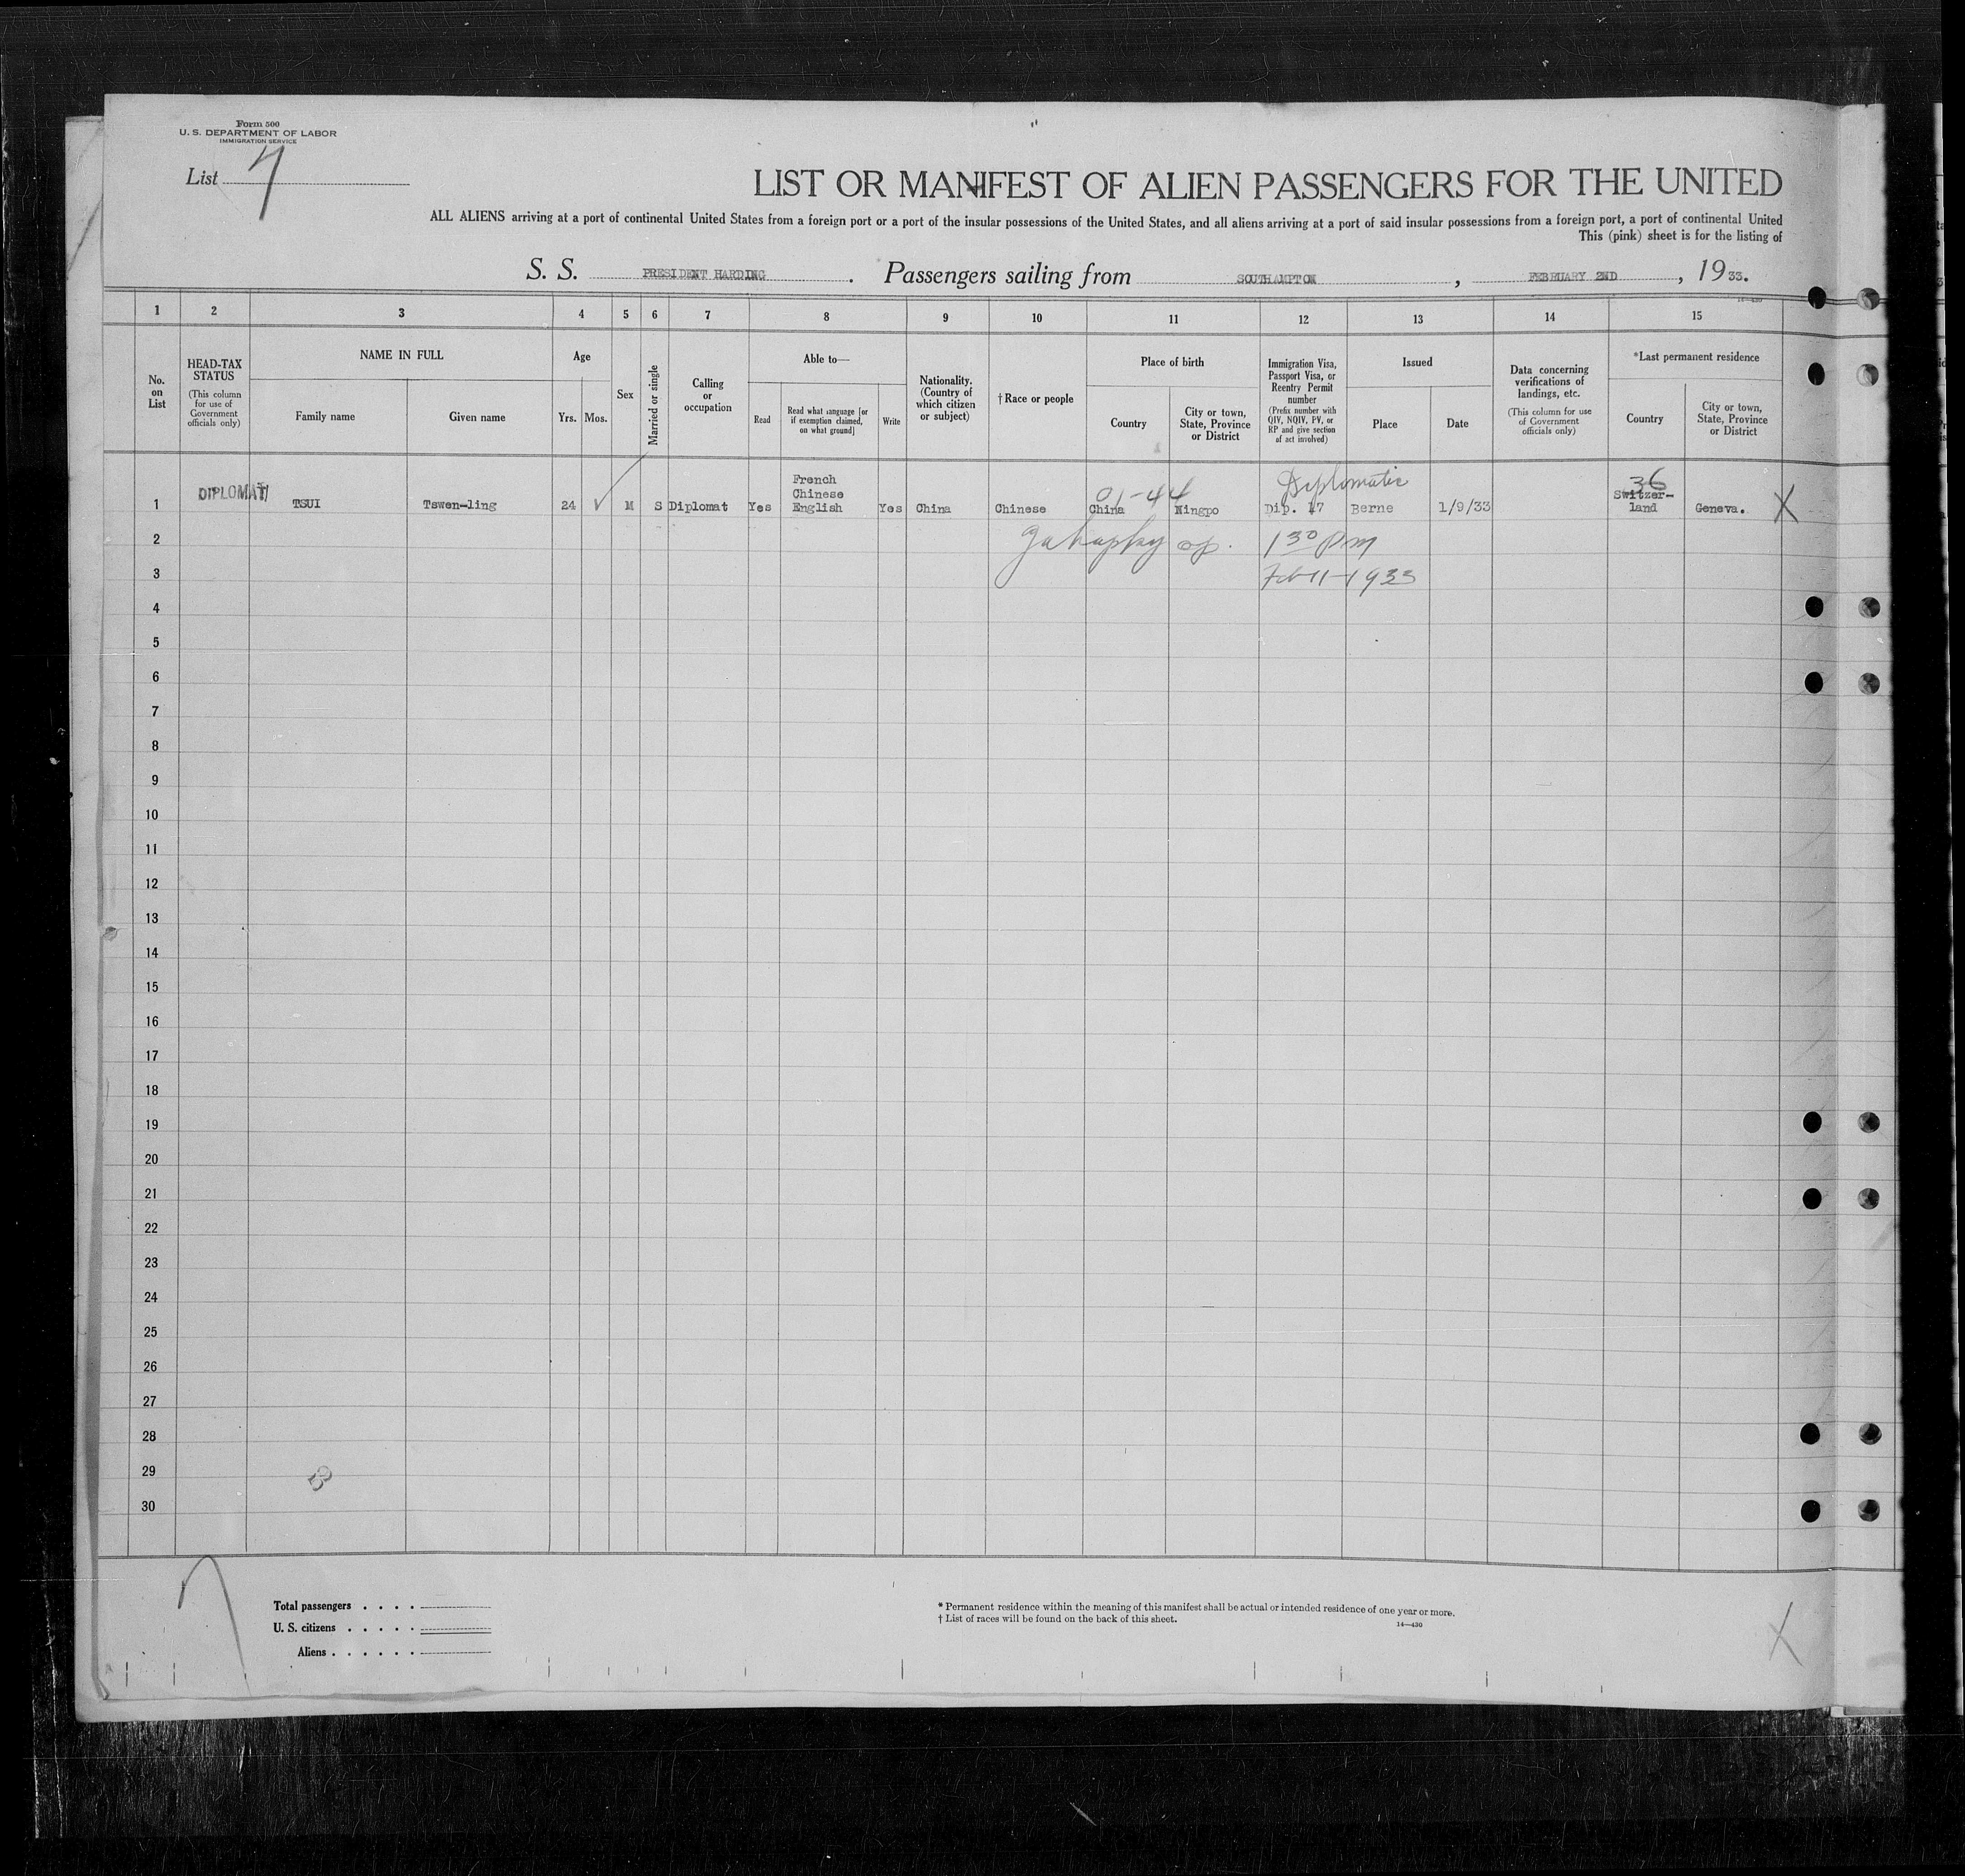 Form 500
U. S. DEPARTMENT OF LABOR
IMMIGRATION SERVICE
List 7
LIST OR MANIFEST OF ALIEN PASSENGERS FOR THE UNITED
ALL ALIENS arriving at a port of continental United States from a foreign port or a port of the insular possessions of the United States, and all aliens arriving at a port of said insular possessions from a foreign port, a port of continental United
This (pink) sheet is for the listing of
S. S. PRESIDENT HARDING. Passengers sailing from SOUTHAMPTON, FEBRUARY 2ND, 1933.
14-430
1 2 3 4 5 6 7 8 9 10 11 12 13 14 15
No. on List
HEAD-TAX STATUS
(This column for use of Government officials only)
NAME IN FULL
Family name
Given name
Age
Yrs. Mos.
Sex
Married or single
Calling or occupation
Able to—
Read
Read what language [or if exemption claimed, on what ground]
Write
Nationality. (Country of which citizen or subject)
† Race or people
Place of birth
Country
City or town, State, Province or District
Immigration Visa, Passport Visa, or Reentry Permit number
(Prefix number with QIV, NQIV, PV, or RP and give section of act involved)
Issued
Place
Date
Data concerning verifications of landings, etc.
(This column for use of Government officials only)
*Last permanent residence
Country
City or town, State, Province or District
01-44 Diplomatic 36
1 DIPLOMAT TSUI Tswen-ling 24 M S Diplomat Yes French Chinese English Yes China Chinese China Ningpo Dip. 17 Berne 1/9/33 Switzer-land Geneva. X
2 1 30 pm
3 Feb 11-1933
4
5
6
7
8
9
10
11
12
13
14
15
16
17
18
19
20
21
22
23
24
25
26
27
28
29
30
Total passengers . . . .
U. S. citizens . . . . .
Aliens . . . . . .
* Permanent residence within the meaning of this manifest shall be actual or intended residence of one year or more.
† List of races will be found on the back of this sheet.
14—430
X